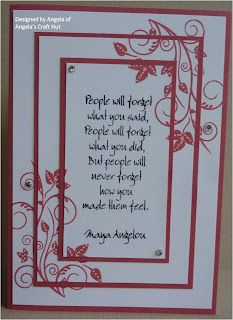 Designed by Angela of
Angela's Craft Hut
People will forget
what you said,
People will forget
what you did,
But people will
never forget
how you
made them feel.
Maya Angelou